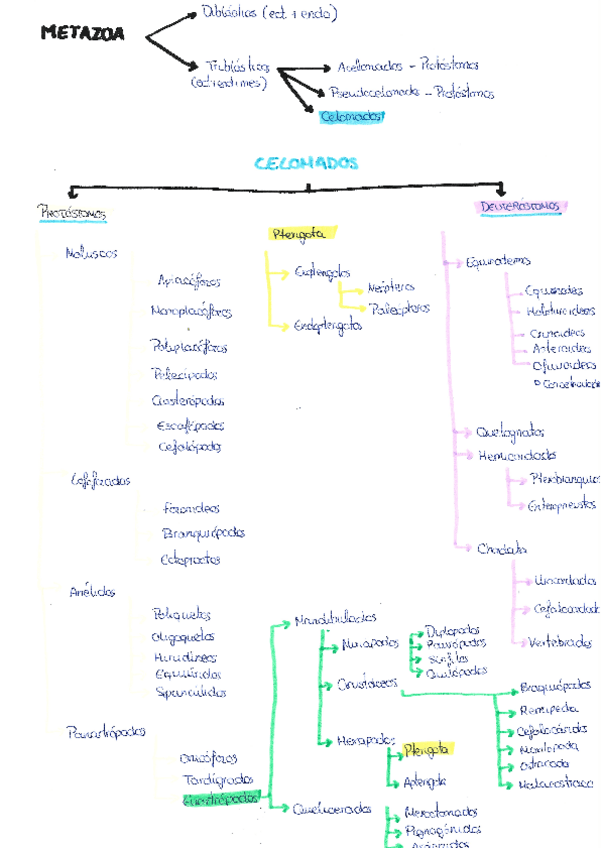 METAZOA
Diblásticos (ect + endo)
Triblásticos
(ect+end+mes)
Acelomados - Protóstomos
Pseudocelomados - Protóstomos
Celomados
CELOMADOS
PROTÓSTOMOS
Moluscos
Aplacóforos
Monoplacóforos
Poliplacóforos
Pelecípodos
Gasterópodos
Escafópodos
Cefalópodos
Lofoforados
Foronideos
Branquiópodos
Ectoproctos
Anélidos
Poliquetos
Oligoquetos
Hirudineos
Equiúridos
Sipuncúlidos
Panartrópodos
Onicóforos
Tardígrados
Euartrópodos
Pterigota
Exopterigotos
Neópteros
Paleópteros
Endopterigotos
Mandibulados
Miriápodos
Diplópodos
Paurópodos
Sínfilos
Quilópodos
Crustáceos
Braquiópodos
Remipedia
Cefalocáridos
Maxilopoda
Ostracoda
Malacostracea
Hexápodos
Pterigota
Apterigota
Quelicerados
Merostomados
Pignogónidos
Arácnidos
DEUTERÓSTOMOS
Equinodermos
Equinoideos
Holoturoideos
Crinoideos
Asteroideos
Ofiuroideos
Concentricicloideos
Quetognatos
Hemicordados
Pterobranquios
Enteropneustos
Chordata
Urocordados
Cefalocordados
Vertebrados